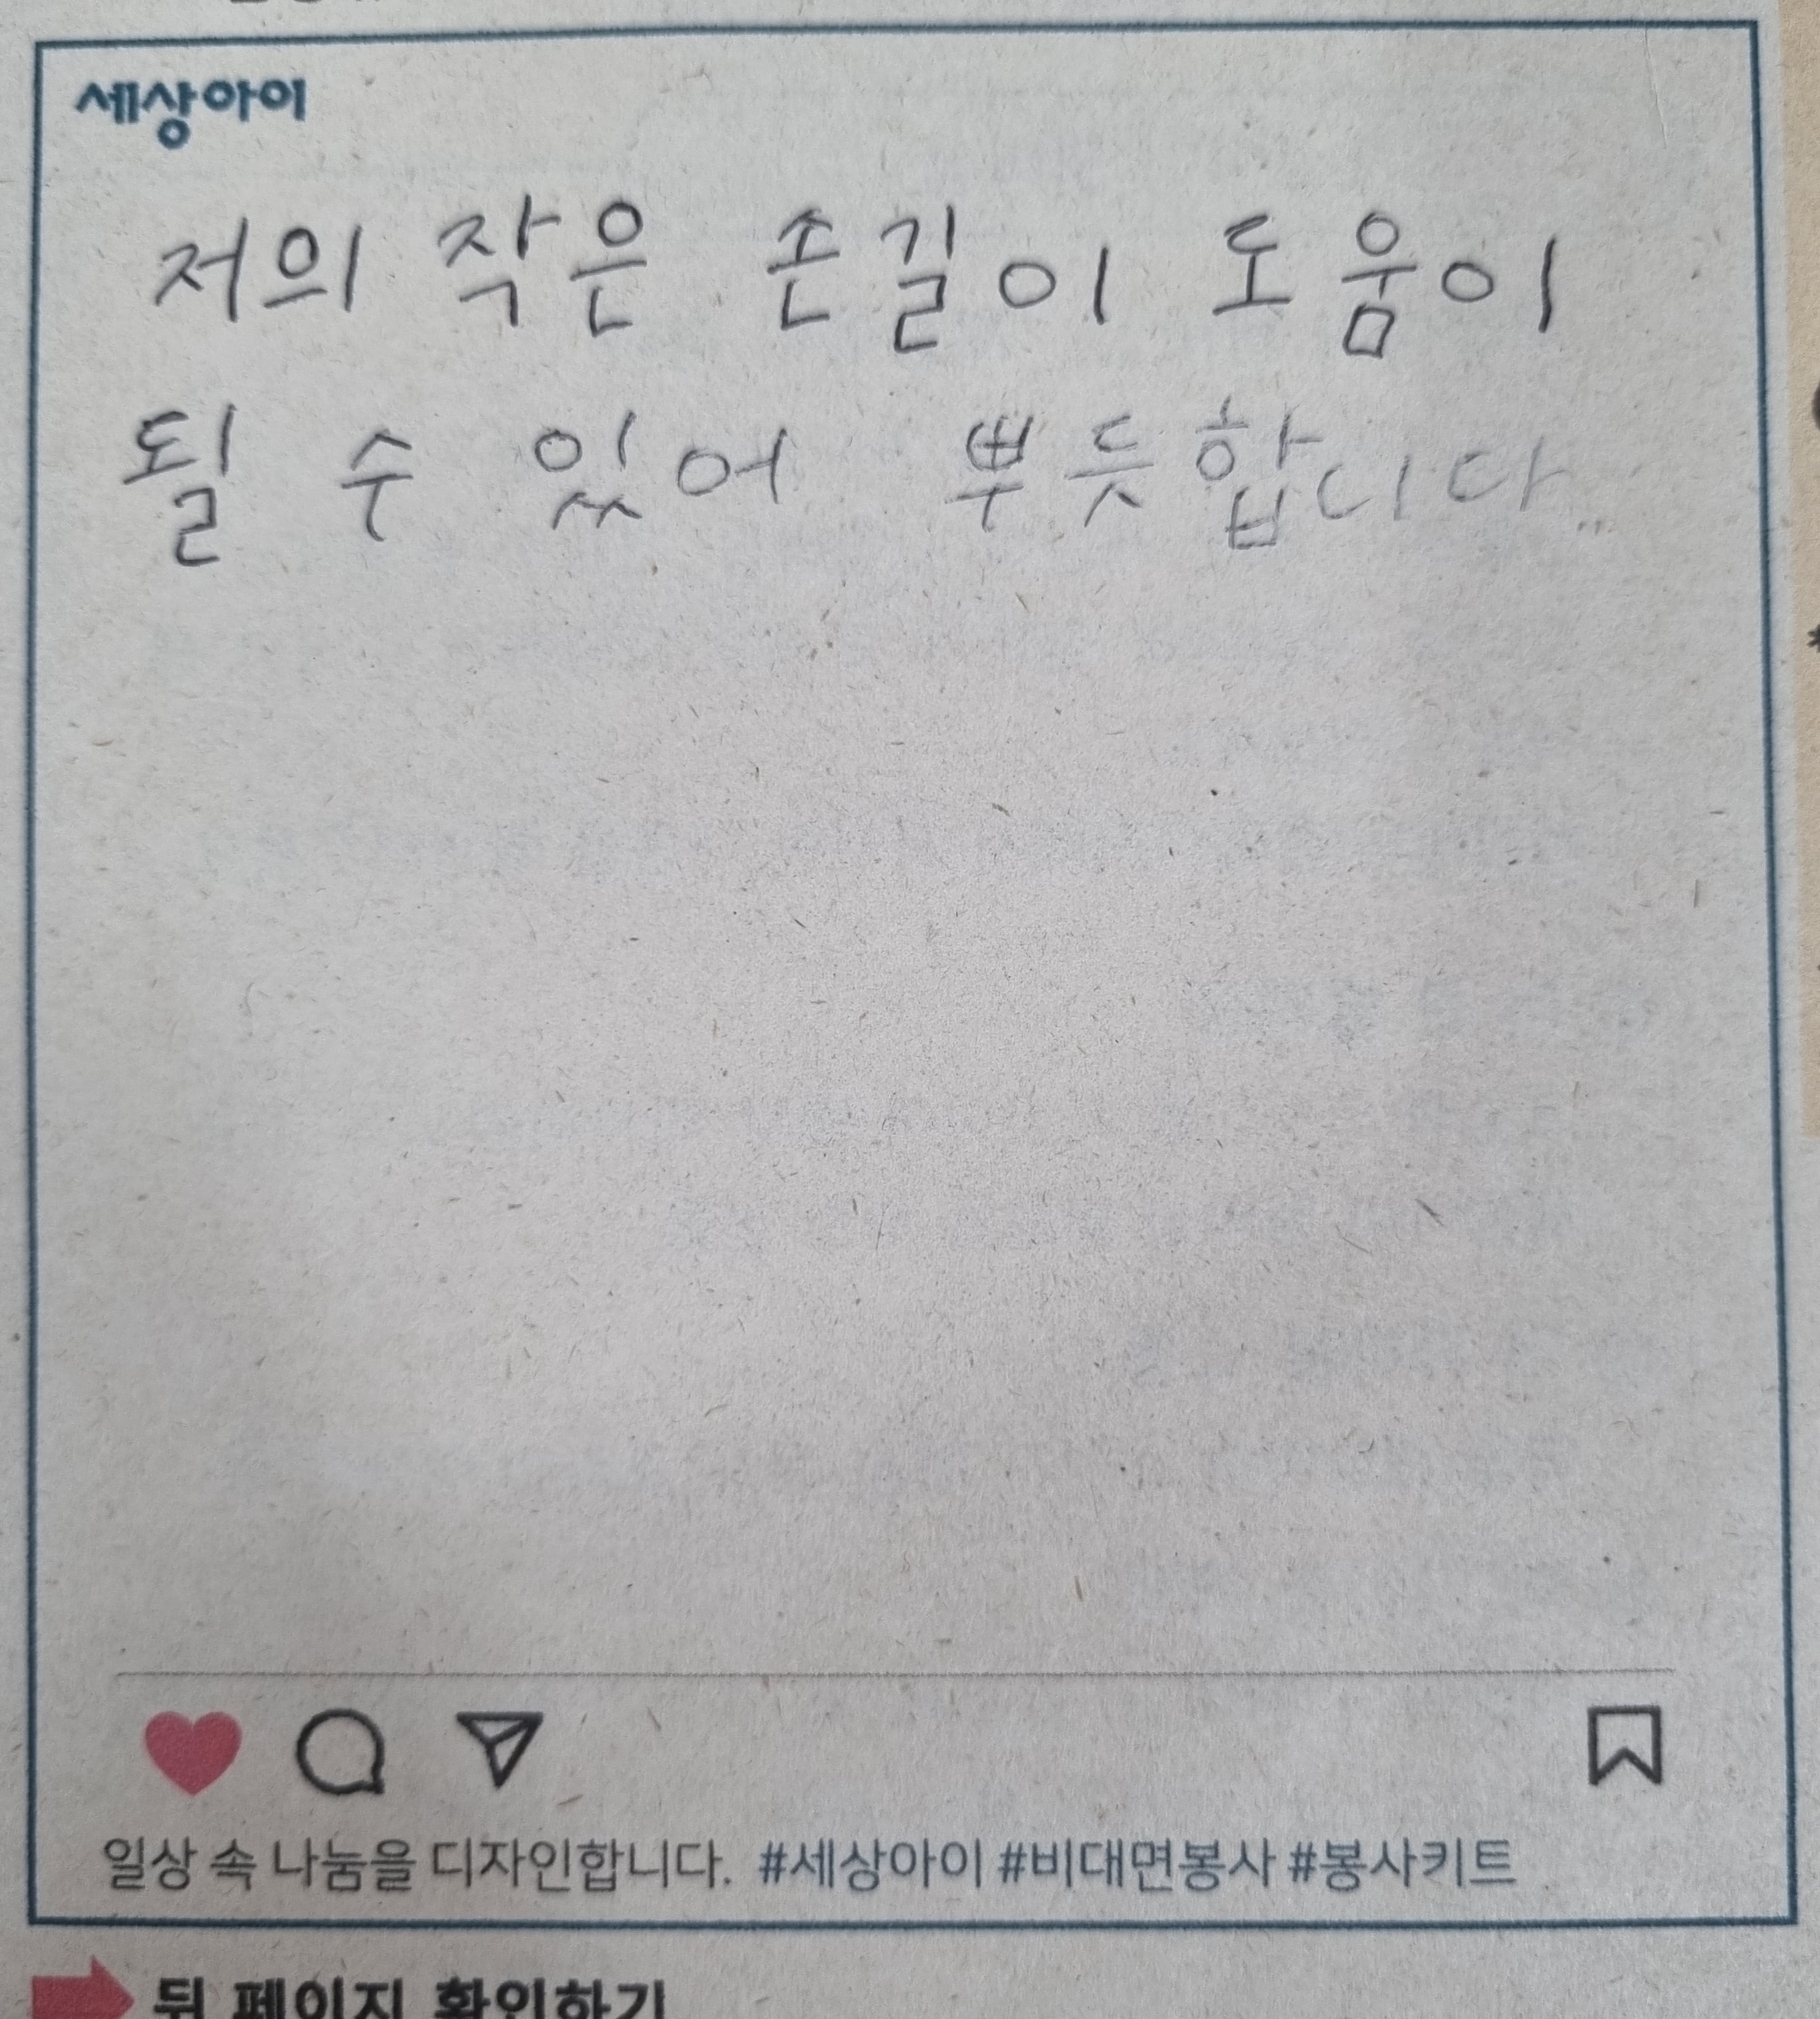 세상아이
저의 작은 손길이 도움이
될 수 있어 뿌듯합니다...
일상 속 나눔을 디자인합니다. #세상아이 #비대면봉사 #봉사키트
뒷 페이지 확인하기